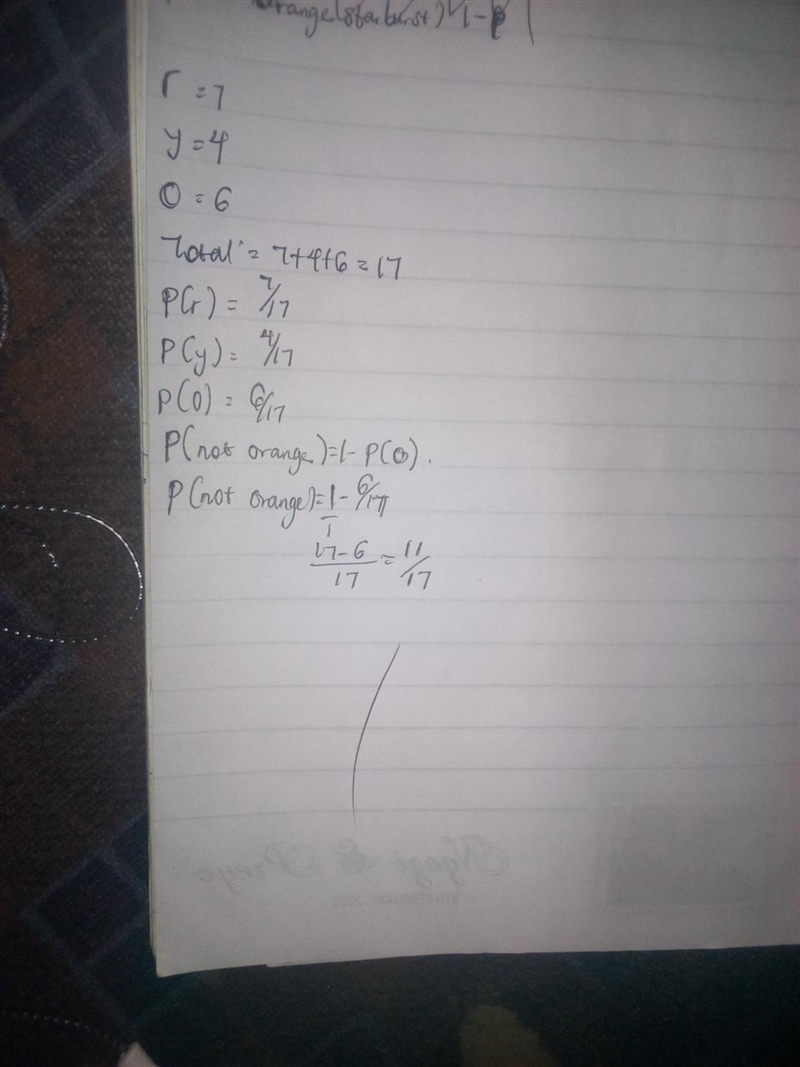 Orange(starburst) 1-P
r = 7
y = 4
O = 6
Total = 7+4+6 = 17
P(r) = 7/17
P(y) = 4/17
P(O) = 6/17
P(not orange)=1- P(O).
P(not orange)=1/1 - 6/17
17-6/17 = 11/17